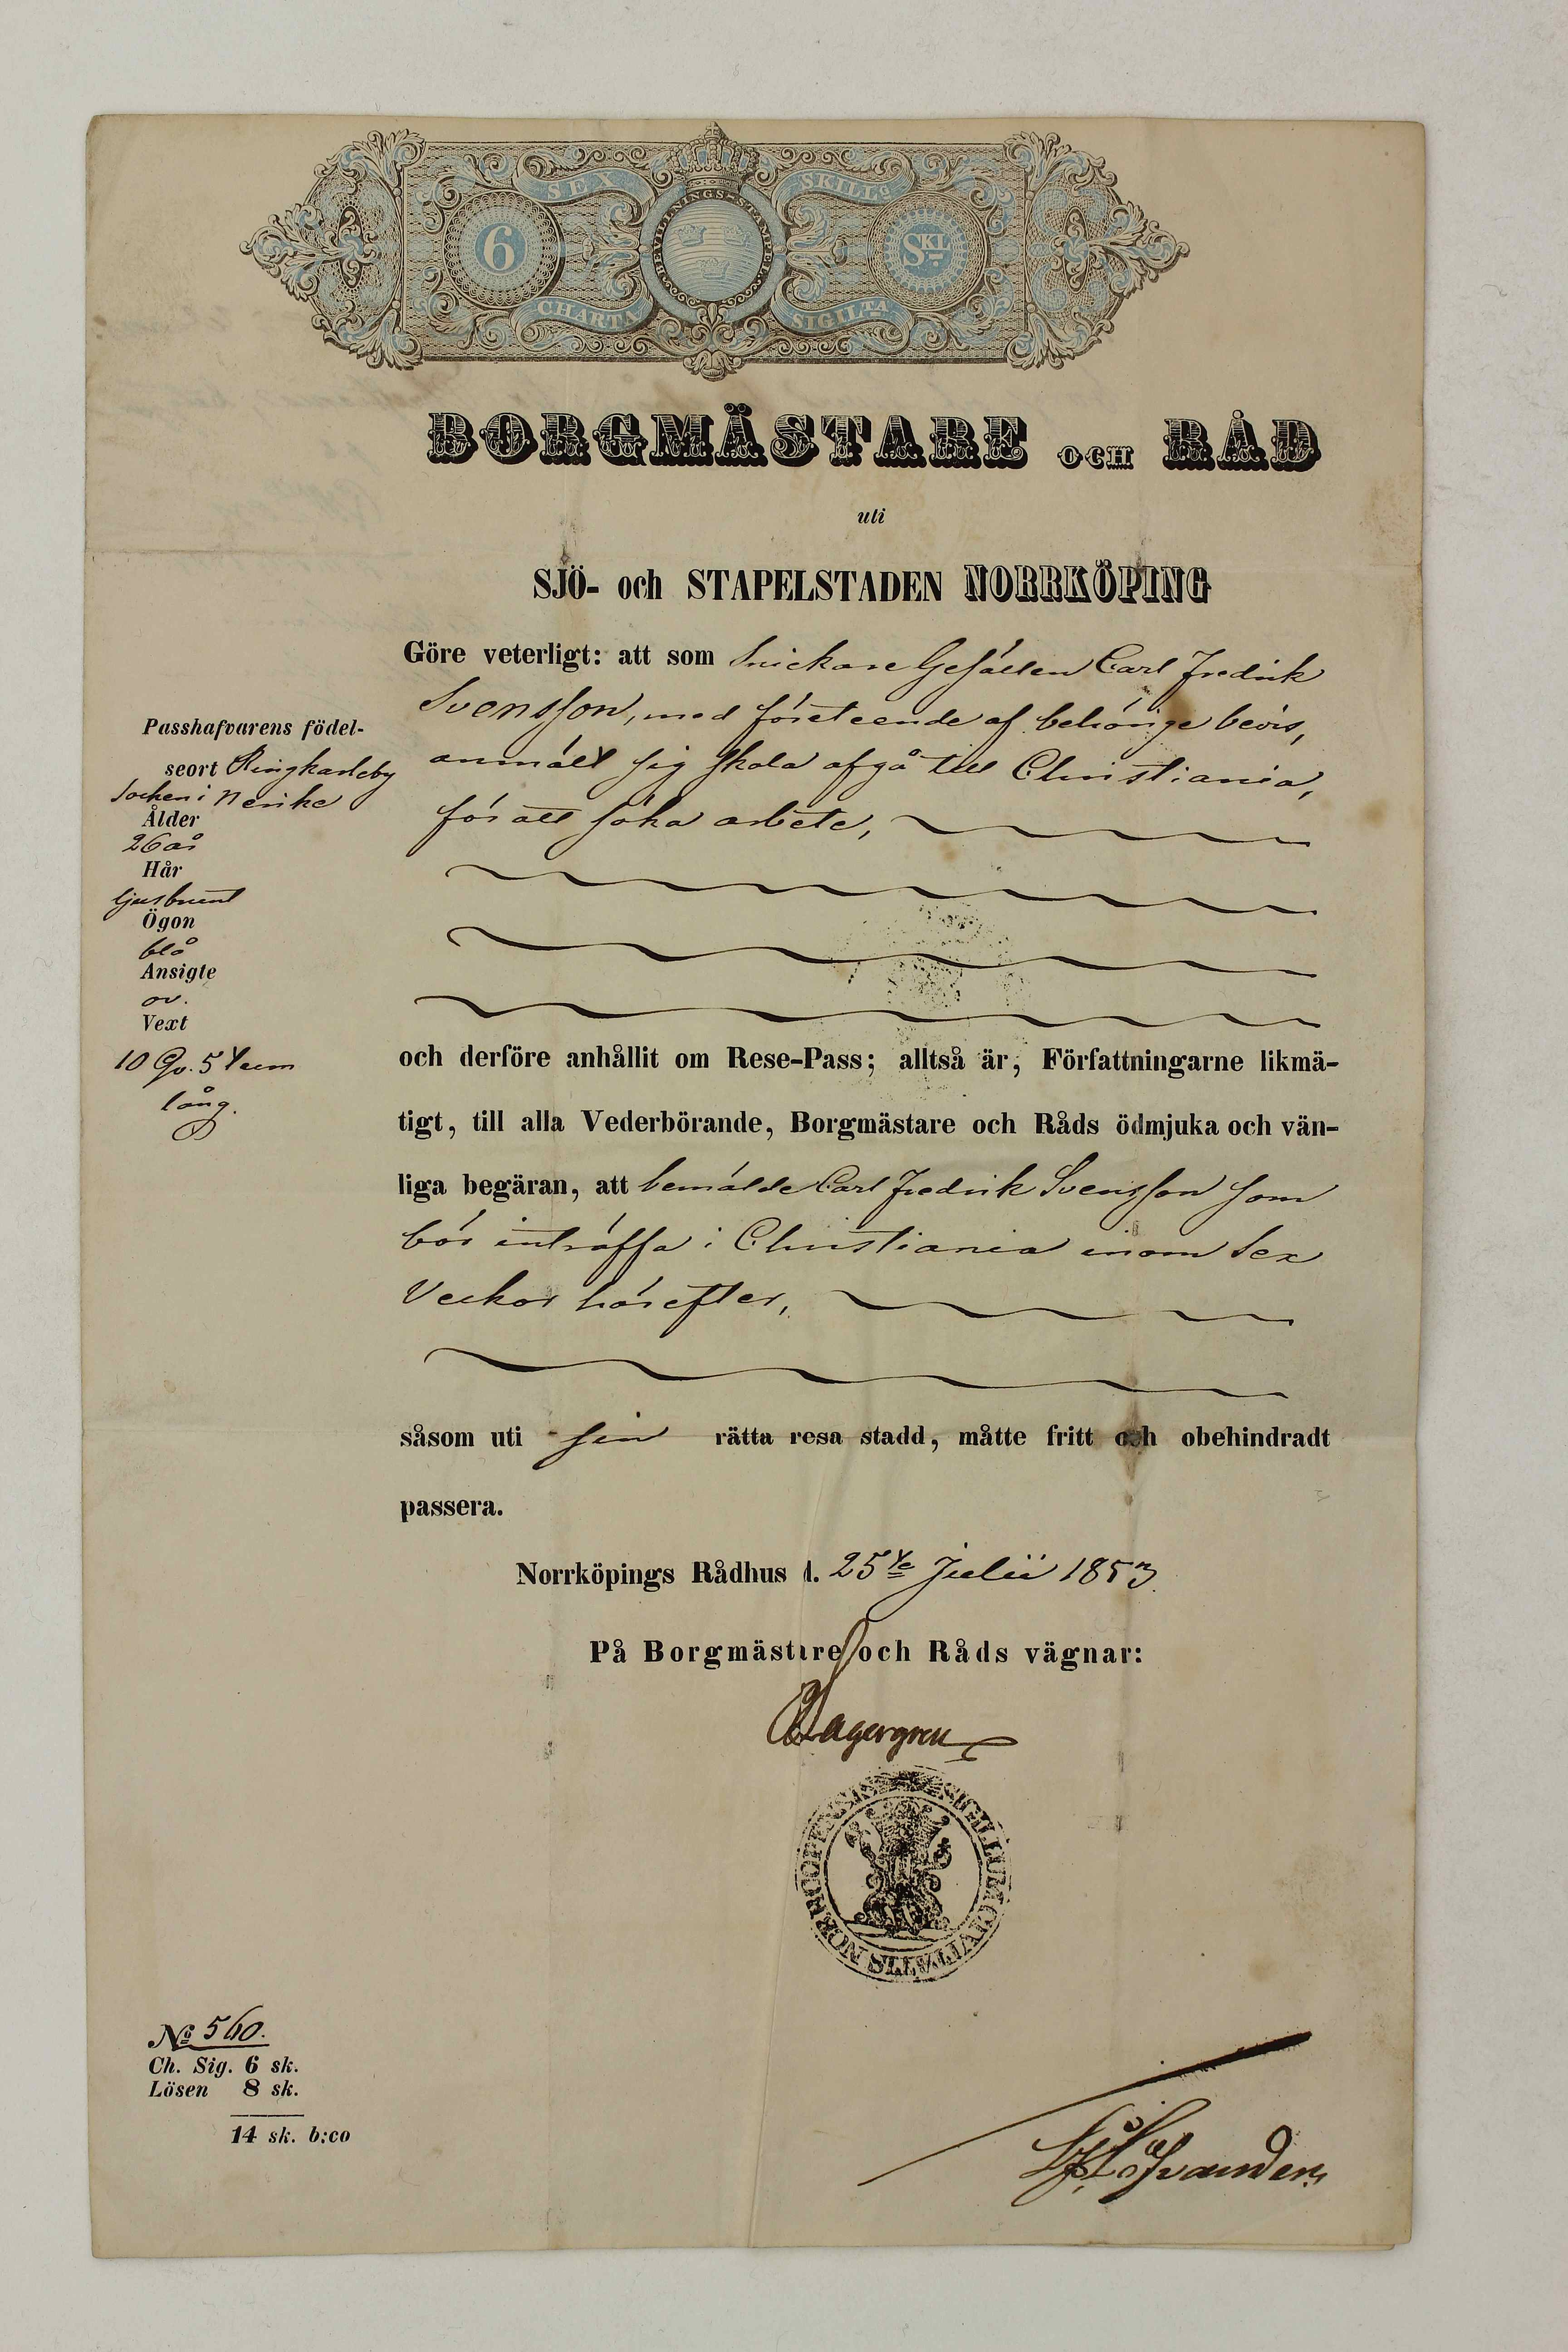 SEX SKILLG
BEVILLNINGS-STÄMPEL
6 SKL
CHARTA SIGILTA
BORGMÄSTARE OCH RÅD
uti
SJÖ- och STAPELSTADEN NORRKÖPING
Göre veterligt: att som Snickare Gesällen Carl Fredrik
Svensson, med företeende af behörige bevis,
anmält sig skola afgå till Christiania,
för att söka arbete,
Passhafvarens födel-
seort Ringkarleby
Socken i Nerike
Ålder
26 år
Hår
ljusbrunt
Ögon
blå
Ansigte
ov.
Vext
10 Qv. 5 tum
lång.
och derföre anhållit om Rese-Pass; alltså är, Författningarne likmä-
tigt, till alla Vederbörande, Borgmästare och Råds ödmjuka och vän-
liga begäran, att bemälde Carl Fredrik Svensson som
bör inträffa i Christiania inom Sex
Veckor härefter,
såsom uti sin rätta resa stadd, måtte fritt och obehindradt
passera.
Norrköpings Rådhus d. 25te Julii 1853.
På Borgmästare och Råds vägnar:
Lagergren
SIGILLUM CIVITATIS NORCOPENSIS
No 560.
Ch. Sig. 6 sk.
Lösen 8 sk.
14 sk. b:co